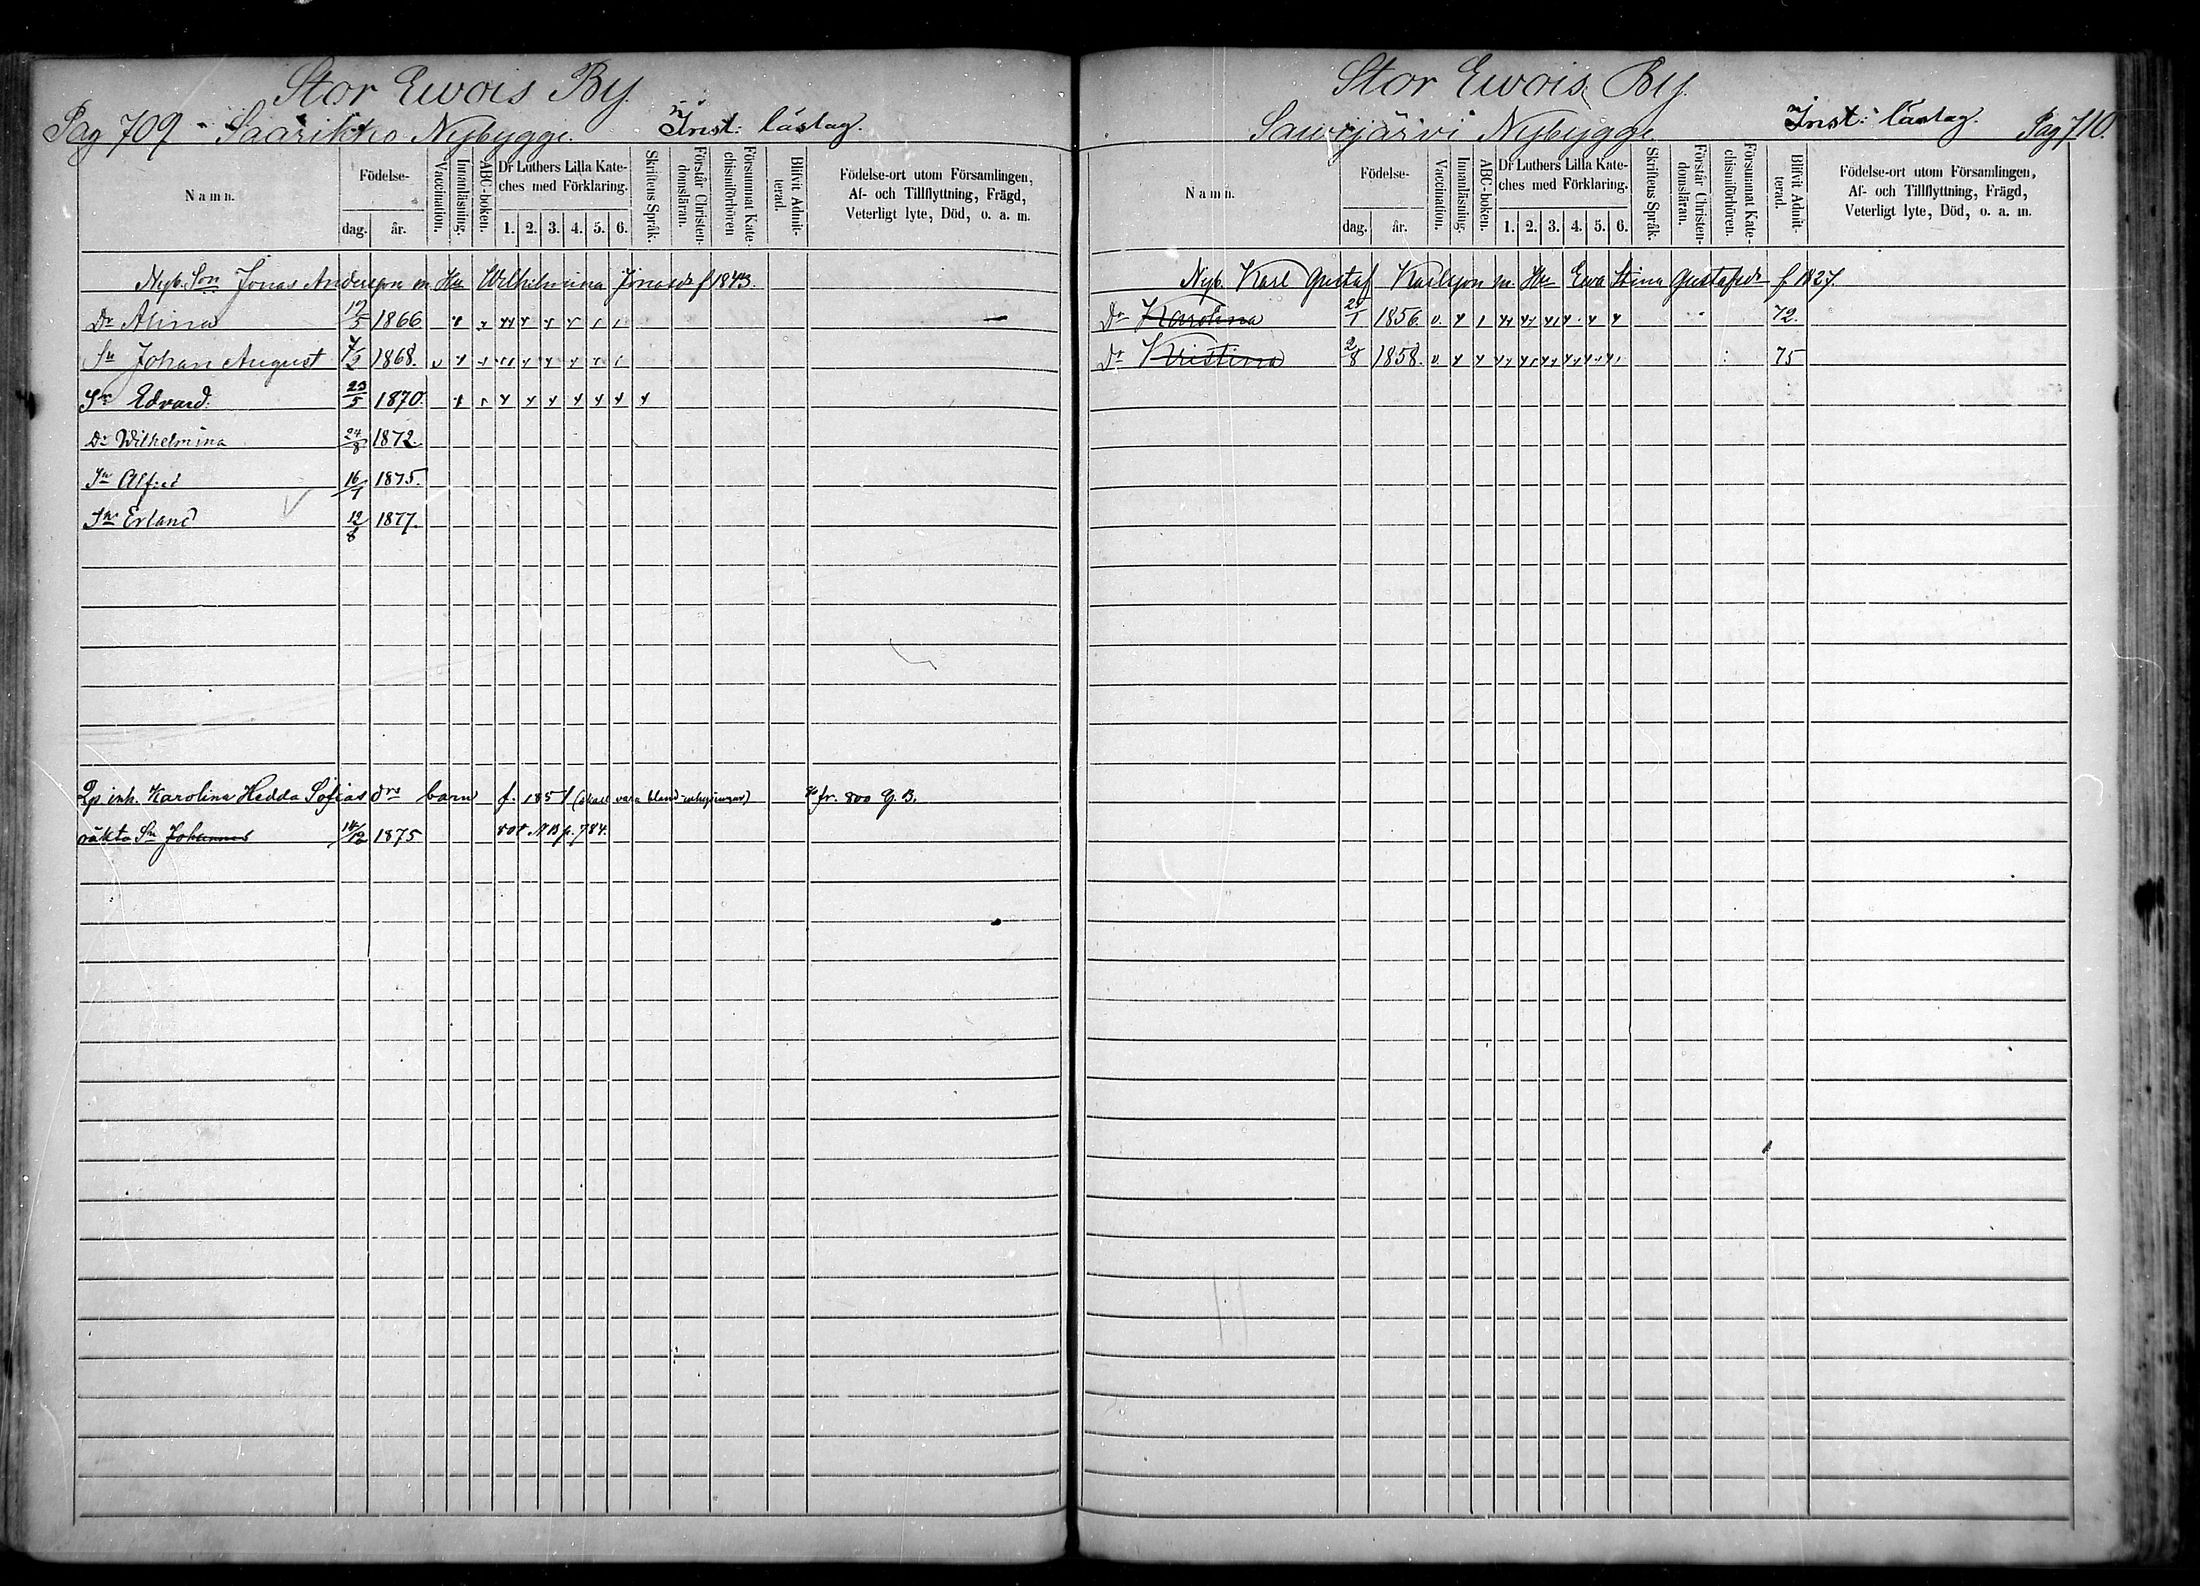 Stor Ewois By.
Pag 709 - Saarikko Nybygge. Inst: läslag.
Namn.
Födelse-
dag. år.
Vaccination.
Innanläsning.
ABC-boken.
Dr Luthers Lilla Kate-
ches med Förklaring.
1. 2. 3. 4. 5. 6.
Skriftens Språk.
Förstår Christen-
domsläran.
Försummat Kate-
chismiförhören
Blifvit Admit-
terad.
Födelse-ort utom Församlingen,
Af- och Tillflyttning, Frägd,
Veterligt lyte, Död, o. a. m.
Nyb. Son Jonas Anderson m Hu Wilhelmina Jonasdr f 1843.
Dr Alina 1866
Sn Johan August 7/2 1868. v
Sn Edvard. 23/5 1870.
Dr Wilhelmina 24/8 1872.
Sn Alfred 16/1 1875.
Sn Erland 12/8 1877.
inh. Karolina Hedda Sofias drs barn f. 1851 (skall vara bland inhysingar) fr. 800 G. B.
oäkta Sn Johannes 1875 N B p. 784.
Stor Ewois By.
Saivojärvi Nybygge Inst: läslag. Pag 710.
Namn.
Födelse-
dag. år.
Vaccination.
Innanläsning.
ABC-boken.
Dr Luthers Lilla Kate-
ches med Förklaring.
1. 2. 3. 4. 5. 6.
Skriftens Språk.
Förstår Christen-
domsläran.
Försummat Kate-
chismiförhören.
Blifvit Admit-
terad.
Födelse-ort utom Församlingen,
Af- och Tillflyttning, Frägd,
Veterligt lyte, Död, o. a. m.
Nyb. Karl Gustaf Karlsson m. Hu Ewa Stina Gustafsdr f 1827.
Dr Karolina 1856. v. 72.
Dr Kristina 2/8 1858. v 75